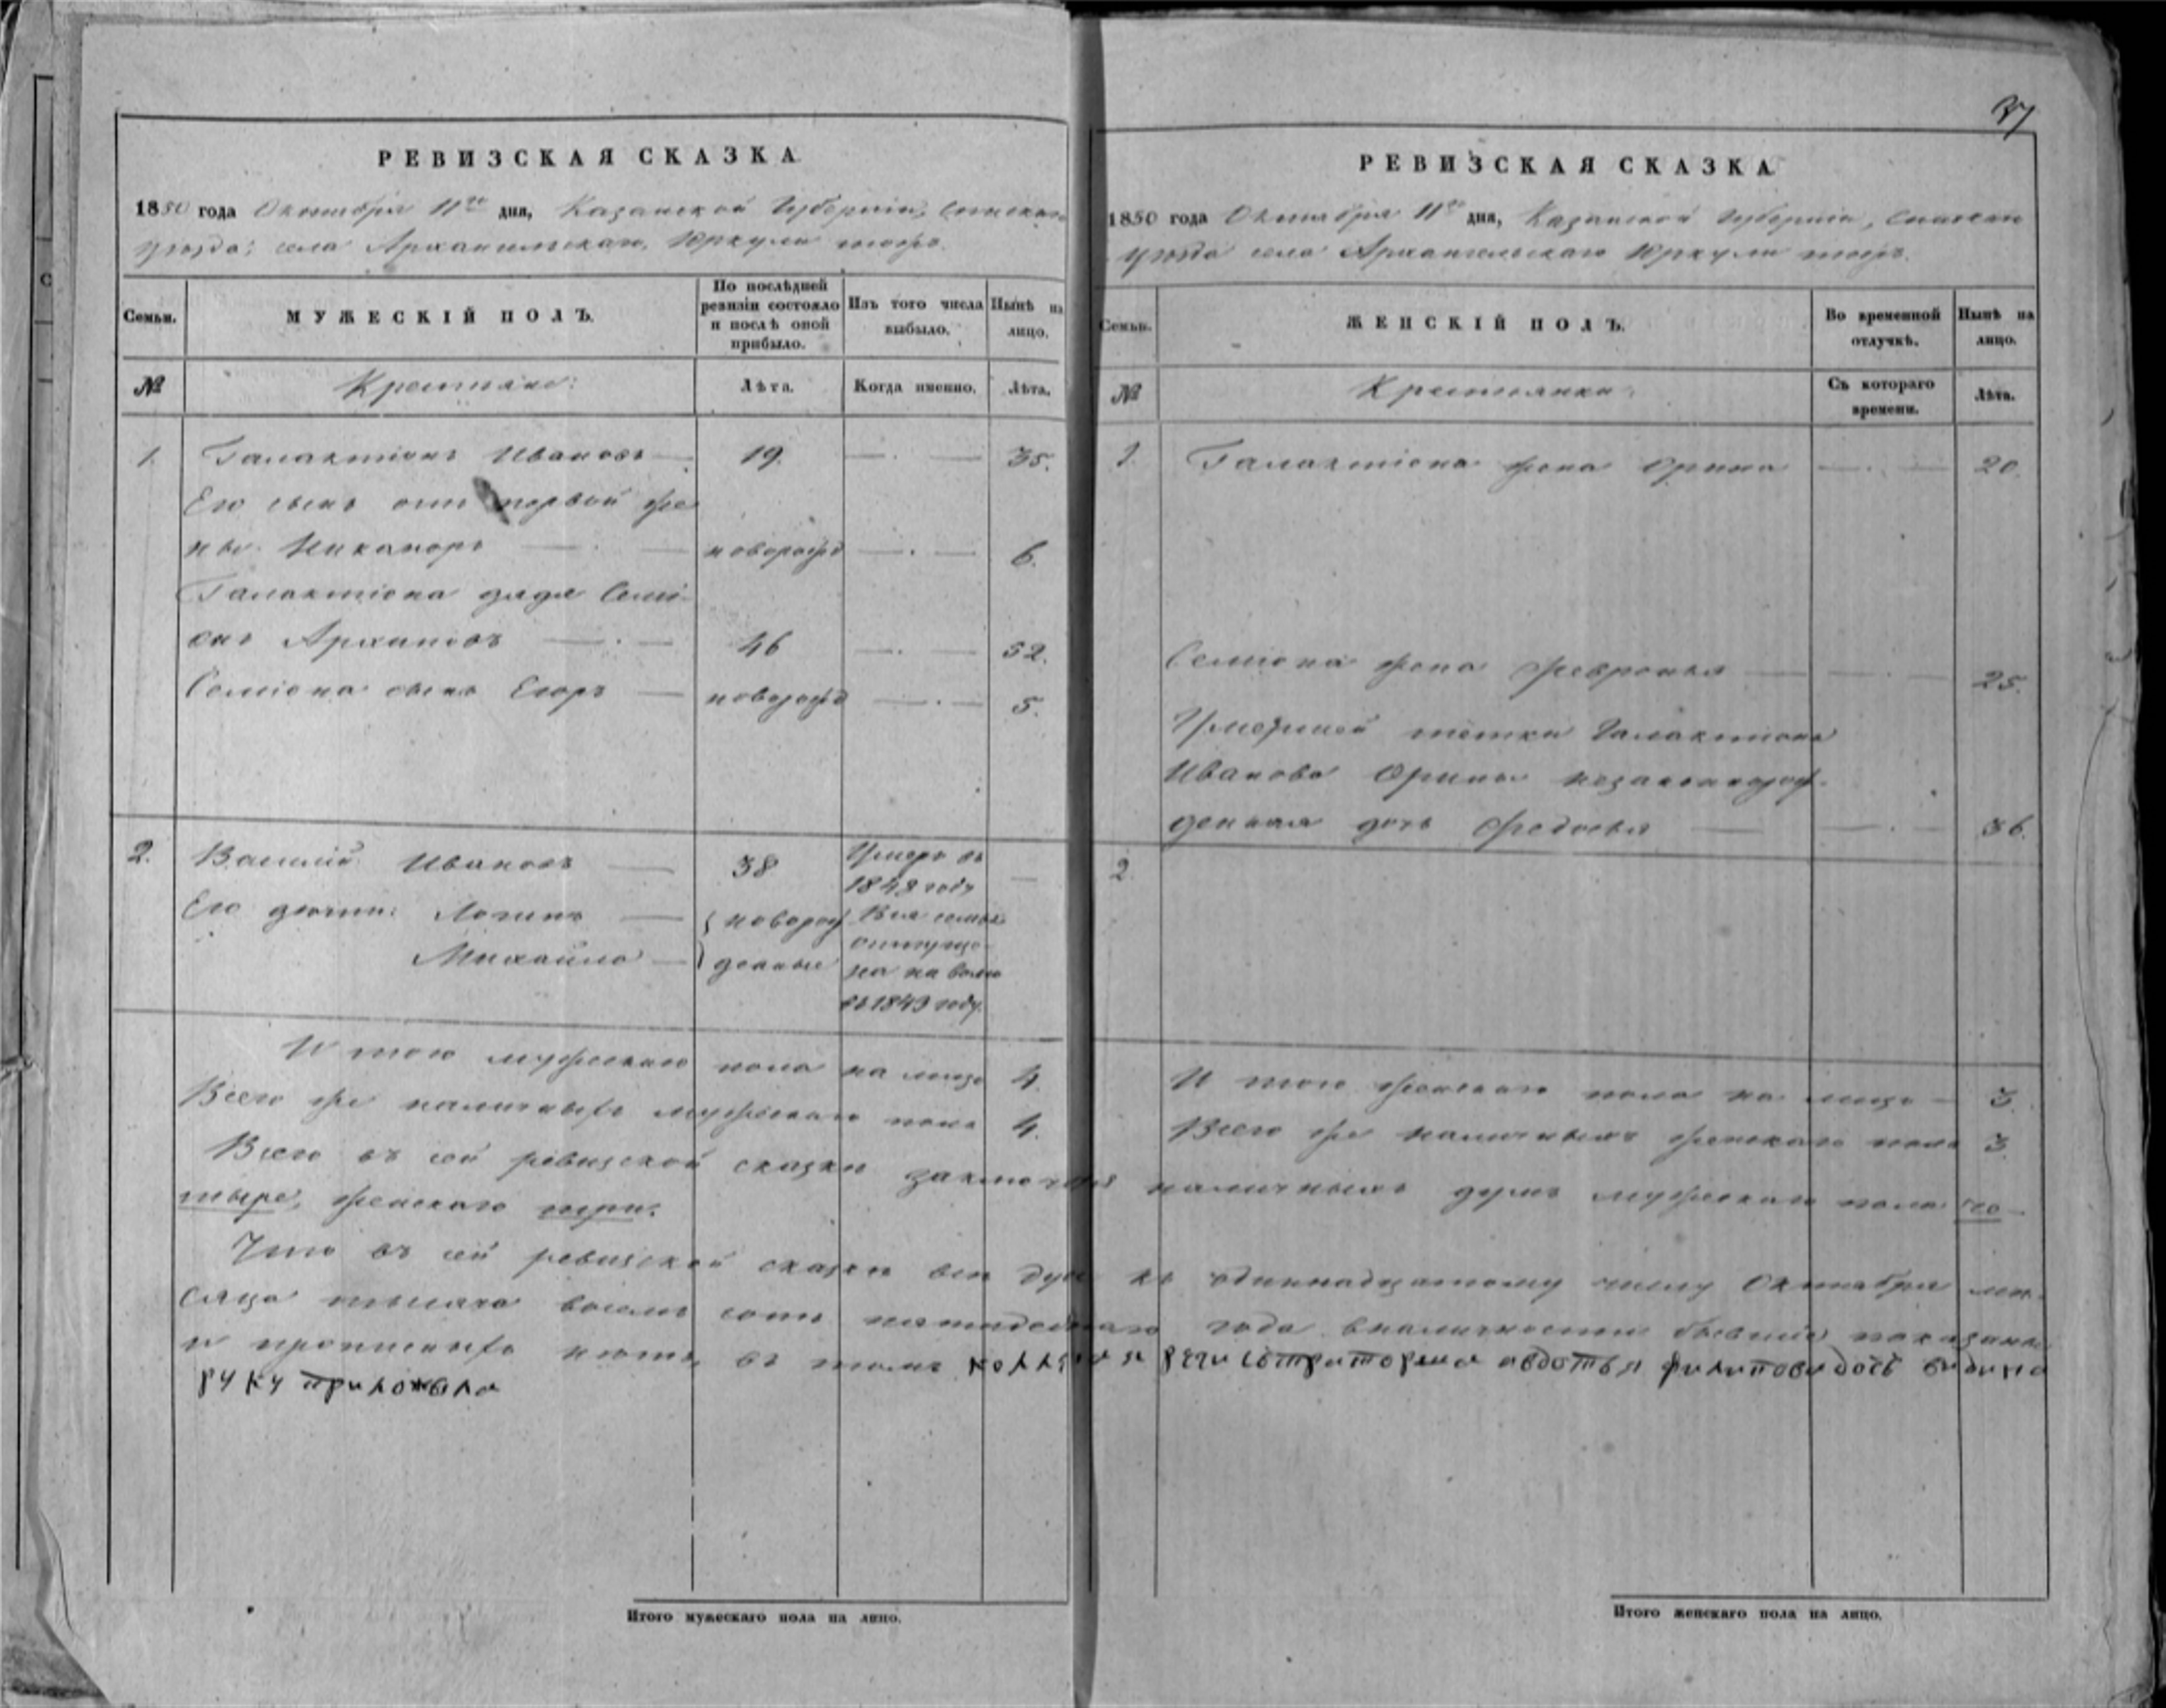 37
РЕВИЗСКАЯ СКАЗКА
1850 года Октября 11го дня, Казанской Губерніи, Спаскаго
уѣзда: села Архангельскаго, Юркули тожъ.
Семьи.
МУЖЕСКІЙ ПОЛЪ.
По послѣдней ревизіи состояло и послѣ оной прибыло.
Изъ того числа выбыло.
Нынѣ на лицо.
№
Крестьяне:
Лѣта.
Когда именно.
Лѣта.
1. Галактіонъ Ивановъ 19. 35.
Его сынъ отъ первой же
ны Никаноръ новорожд 6.
Галактіона дядя Семі-
онъ Архиповъ 46 52.
Семіона сынъ Егоръ новорожд 5.
2. Василій Ивановъ 38 Умеръ въ 1848 году
Его дѣти: Логинъ новорож
Михайло денные
Вся семья
отпуще-
на на волю
въ 1849 году.
Итого мужескаго пола на лицо 4.
Всего же наличныхъ мужескаго пола 4.
РЕВИЗСКАЯ СКАЗКА
1850 года Октября 11го дня, Казанской Губерніи, Спаскаго
уѣзда села Архангельскаго Юркули тожъ.
Семьи.
ЖЕНСКІЙ ПОЛЪ.
Во временной отлучкѣ.
Нынѣ на лицо.
№
Крестьянки:
Съ котораго времени.
Лѣта.
1. Галактіона жена Орина 20.
Семіона жена Февронья 25.
Умершей тетки Галактіона
Иванова Орины незаконнорож-
денная дочь Федосья 36.
2.
Итого женскаго пола на лицо 3.
Всего же наличныхъ женскаго пола 3.
Всего въ сей ревизской сказкѣ заключается наличныхъ душъ мужескаго пола че-
тыре, женскаго три.
Что въ сей ревизской сказкѣ всѣ души къ одиннадцатому числу Октября мѣ-
сяца тысяча восемь сотъ пятидесятаго года вналичности бывшіе показаны
и прописныхъ нѣтъ, въ томъ
руку приложила
Итого мужескаго пола на лицо.
Итого женскаго пола на лицо.